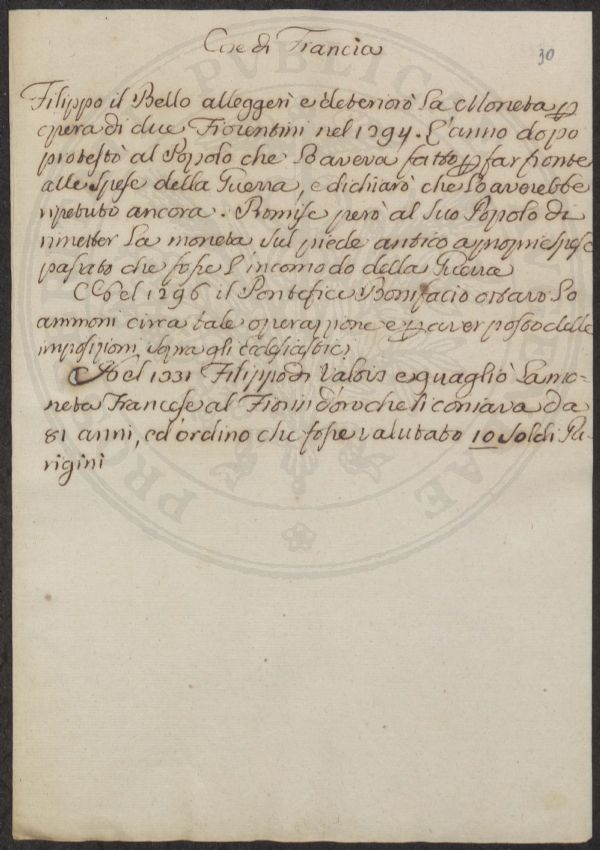 Cose di Francia
30
Filippo il Bello alleggerì e deteriorò la Moneta p
opera di due Fiorentini nel 1294. L'anno dopo
protestò al Popolo che l'aveva fatto p far fronte
alle spese della Guerra, e dichiarò che lo averebbe
ripetuto ancora. Promise però al suo Popolo di
rimetter la moneta sul piede antico a proprie spese
passato che fosse l'incomodo della Guerra
Nel 1296 il Pontefice Bonifacio ottavo lo
ammonì circa tale operazione e p aver posto delle
imposizioni sopra gli Ecclesiastici
Nel 1331 Filippo di Valois equagliò la mo=
neta Francese al Fiorin d'oro che si coniava da
81 anni, ed ordinò che fosse valutato 10 soldi Pa-
rigini